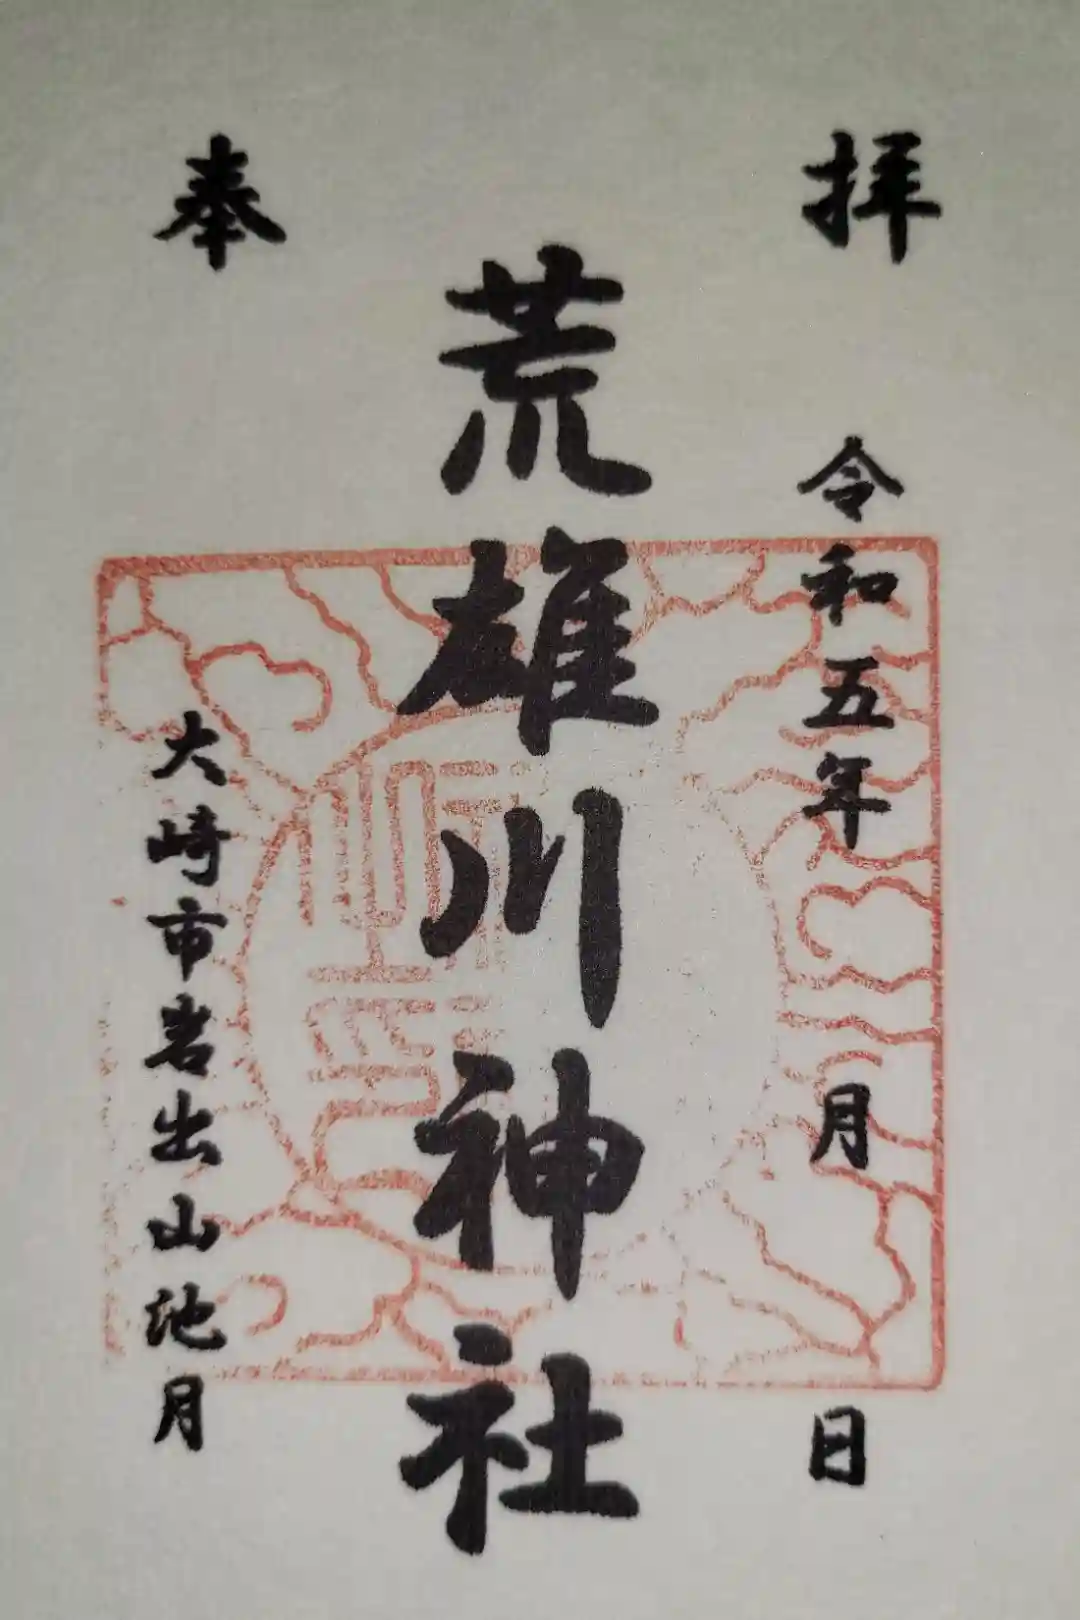 奉拝
荒雄川神社
令和五年 月 日
大崎市岩出山池月